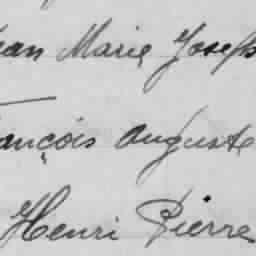 ean Marie Joseph
ançois Auguste
Henri Pierre